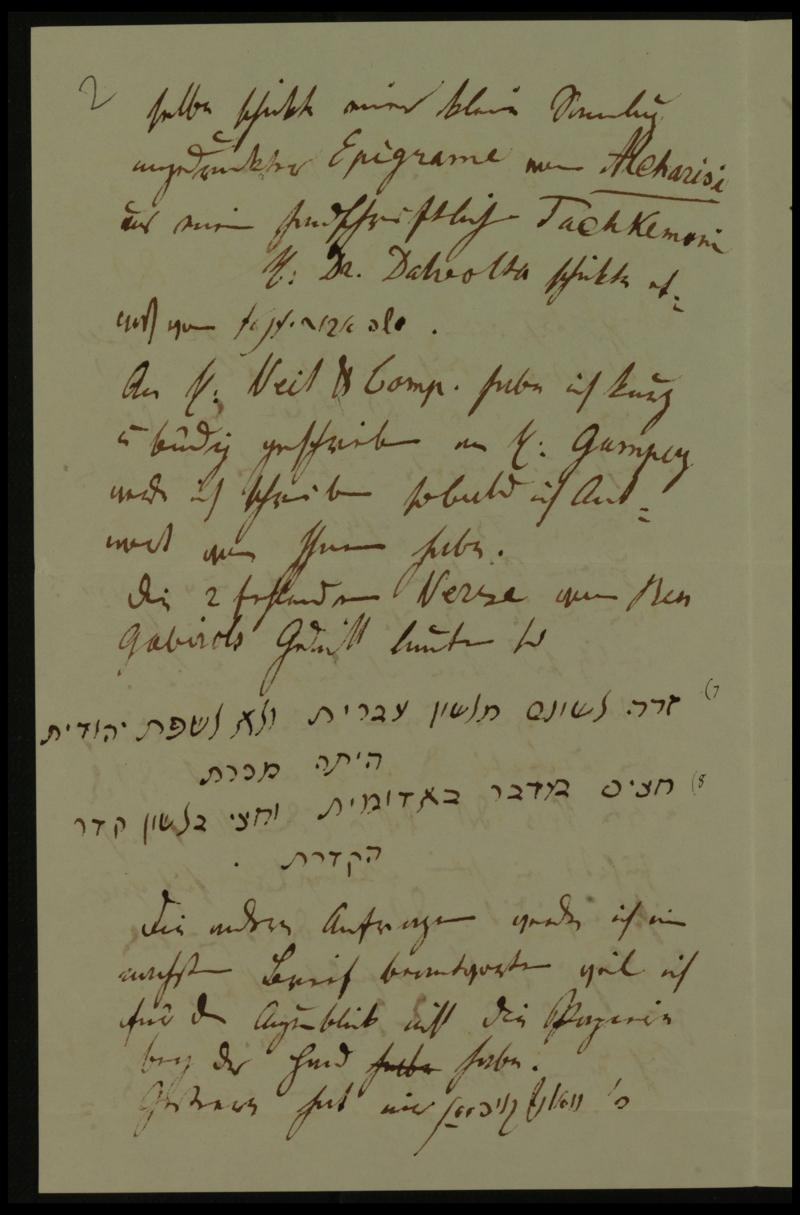 2
selbe schickte eine kleine Sammlung
ungedruckter Epigrame von Alcharisi
und eine handschriftliche Tachkemoni
H: Dr. Dalvolta schickte et=
was von
An H: Veit & Comp. habe ich kurz
u bündig geschrieben an H: Gumpey
werde ich schreiben sobald ich Ant=
wort von Ihnen habe.
Die 2 fehlenden Verse von Ben
Gabirols Gedicht lauten so
7) זרה לשונם מלשון עברית ולא לשפת יהודית
היתה מכרת
8) חצים מדבר באדומית וחצי בלשון קדר
הקדרת .
Die andern Anfragen werde ich im
nachsten Brief beantworten weil ich
für den Augenblick nicht die Papiere
bey der Hand habe habe.
Gestern hat mir